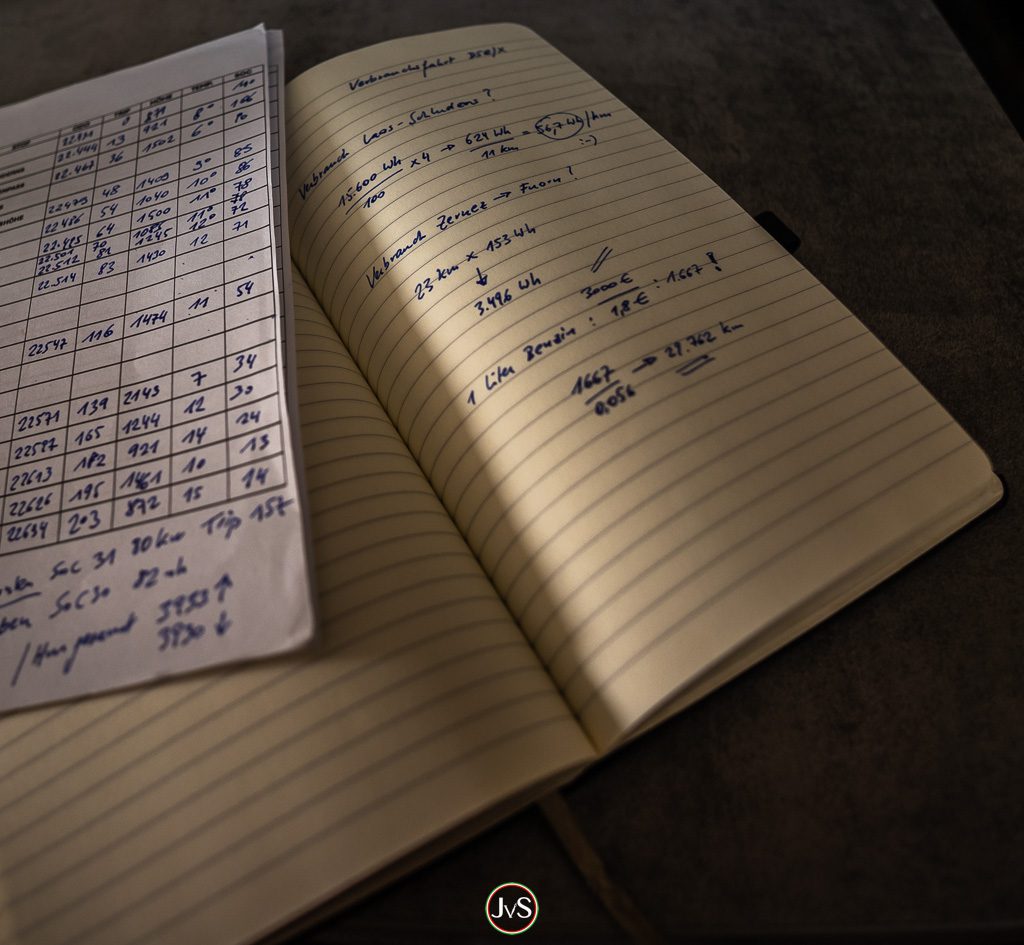 HÖHE TEMP. SOC
22.444 13 921 8°
22.467 36 1502 6°
22479 48 1409 9° 85
22486 54 1040 10° 86
22.495 64 1500 11° 78
22.501 70 1085 11° 78
22.512 81 1245 12° 72
22.514 83 1430 12 71
22547 116 1474 11 54
22571 139 2149 7 34
22597 165 1244 12 30
22613 182 921 14 24
22626 195 1461 10 13
22634 203 872 15 14
SoC 31 80 km Trip 157
SoC 30
3953 ↑
3930 ↓
Verbrauchsfahrt
Verbrauch Laas-Schluderns?
15.600 Wh / 100 x 4 → 624 Wh / 11 km = 56,7 Wh/km
:-)
Verbrauch Zernez → Fuorn?
23 km x 153 Wh
↓
3.496 Wh
1 Liter Benzin : 3000 € / 1,8 € : 1.667 !
1667 / 0,056 → 29.762 km
JvS